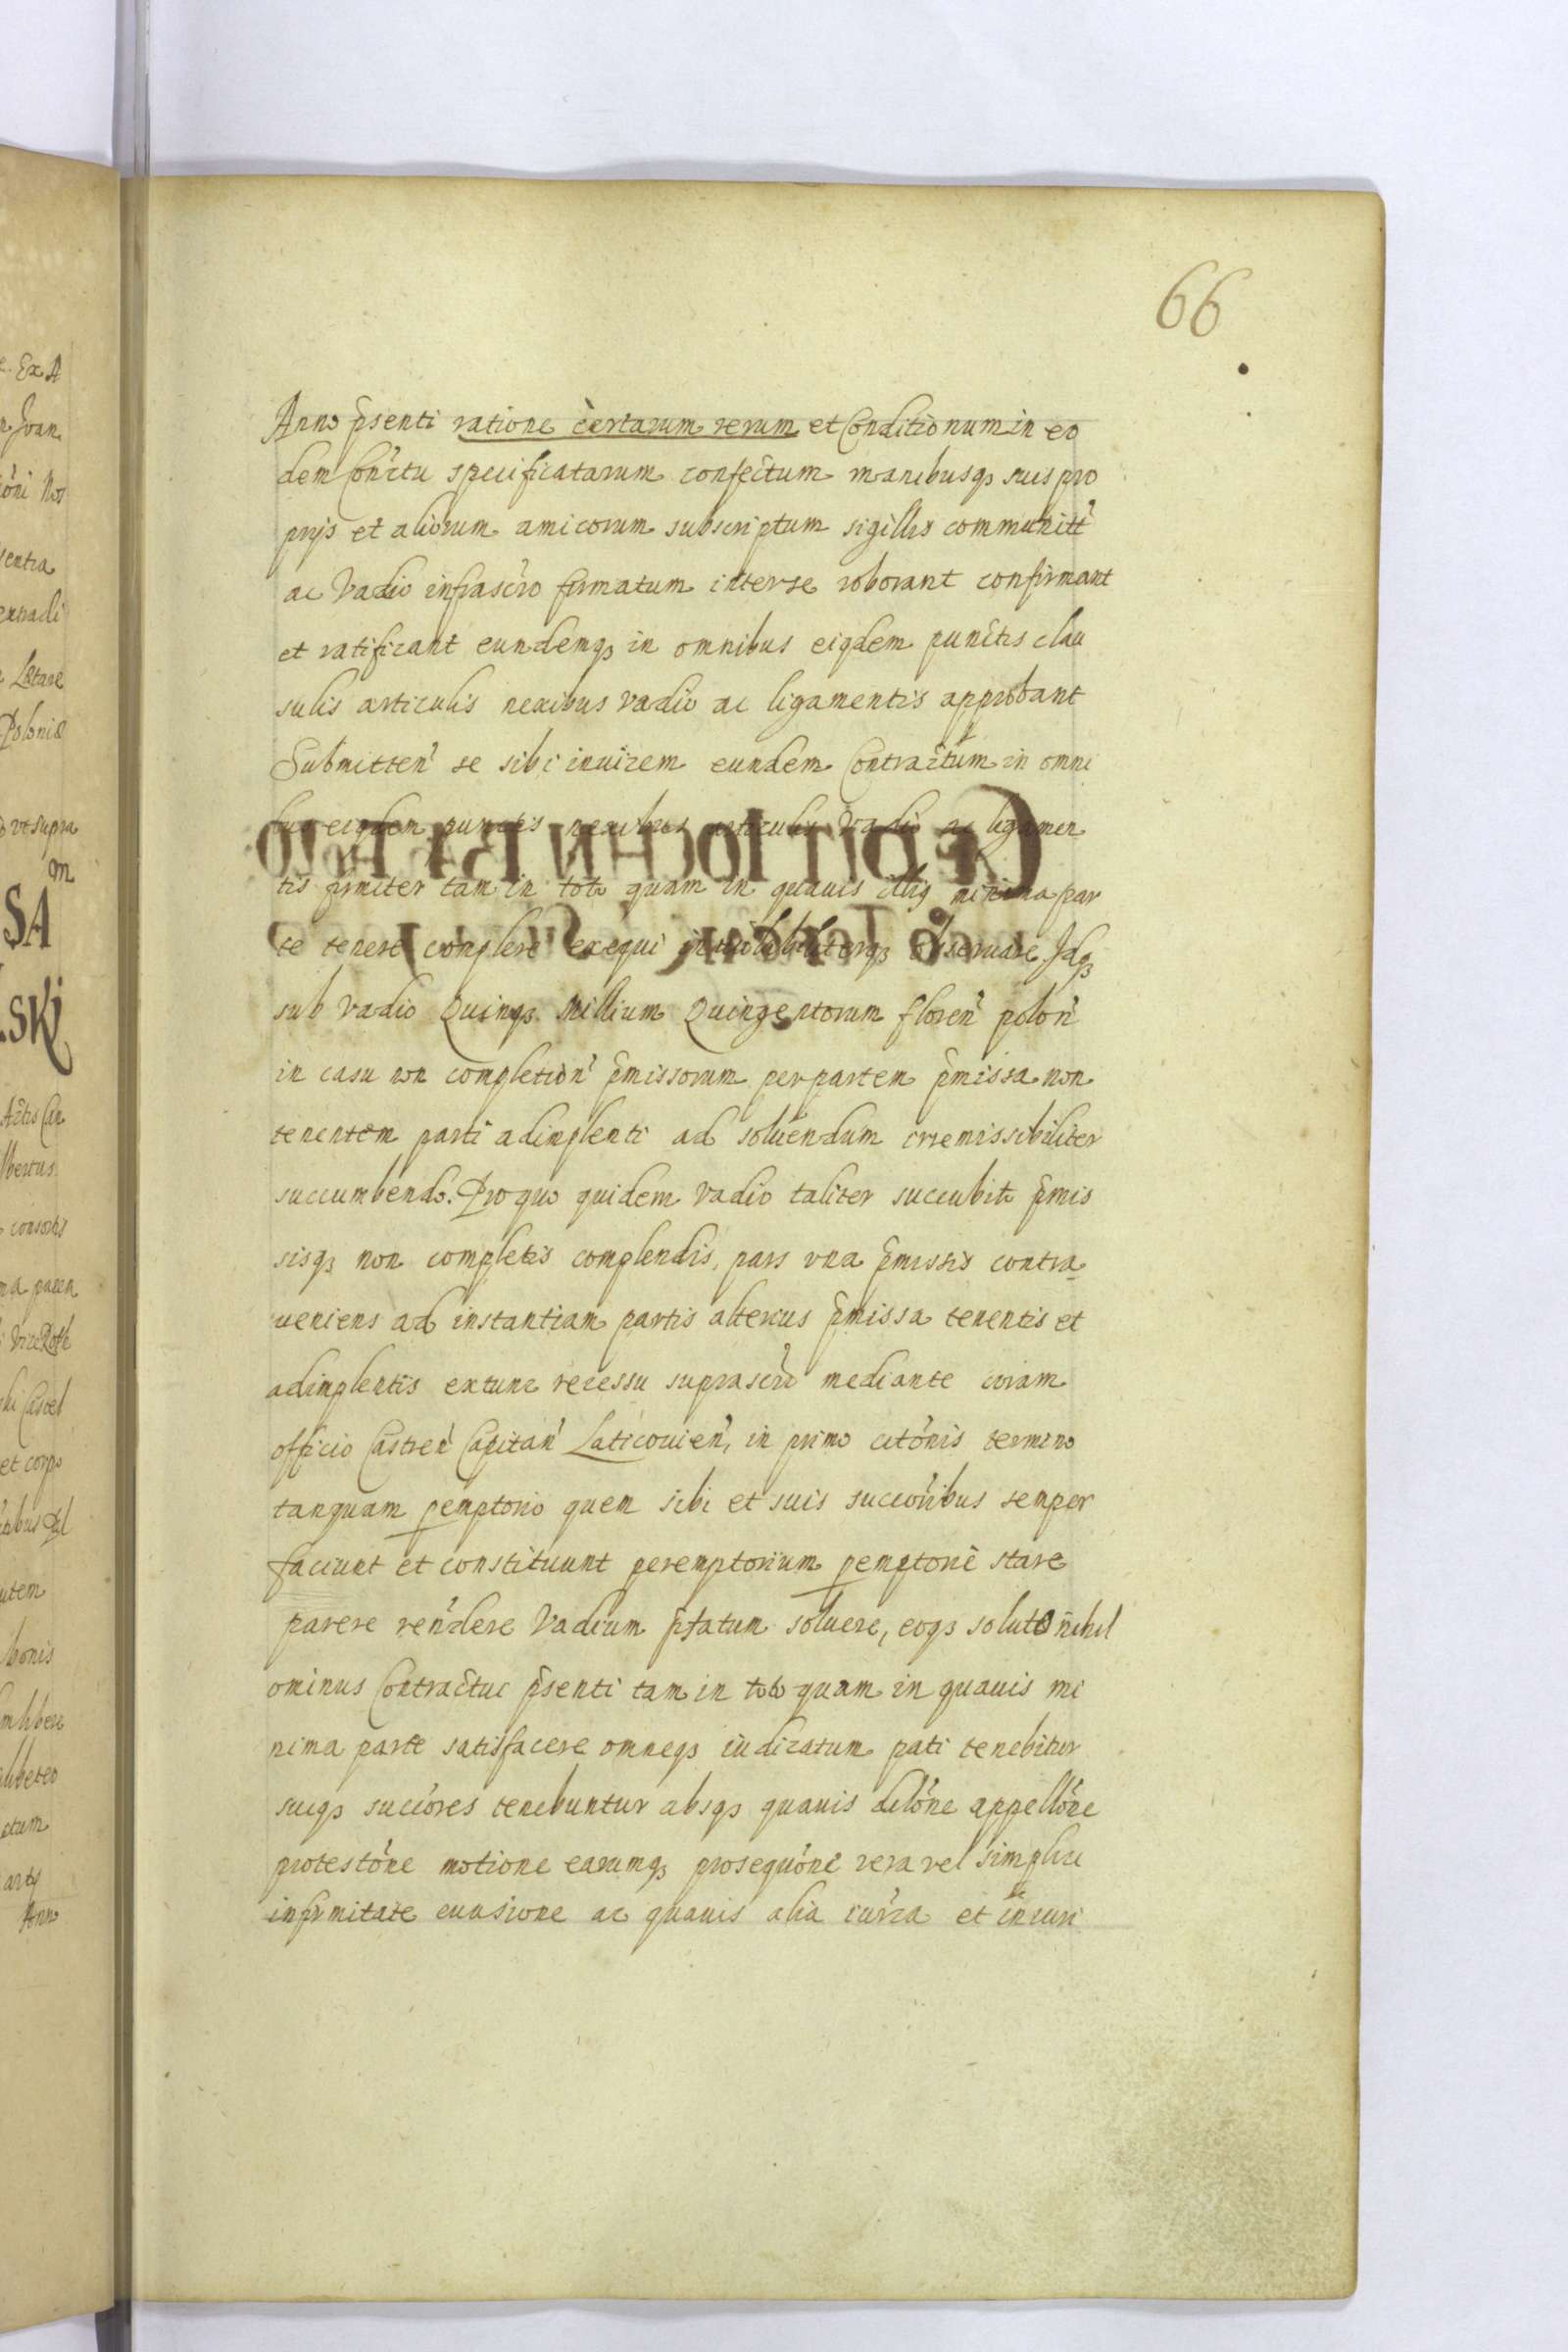 66
Anno p̃senti ratione certarum rerum et Conditionum in eo
dem Conr̃ctu specificatarum confectum manibusqꝫ suis pro
prijs et aliorum amicorum subscriptum sigillis communitt̃
ac Vadio infrascr̃o firmatum inter se roborant confirmant
et ratificant eundemqꝫ in omnibus eiqdem punctis clau
sulis articulis nexibus vadio ac ligamentis approbant
Submitten̉ se sibi inuicem eundem Contractum in omni
bus eiqdem punctis nexibus articulis Vadio ac ligamen
tis firmiter tam in toto quam in quauis illiq minima par
te tenere complere exequi inuiolabiliterqꝫ obseruare. Idqꝫ
sub Vadio Quinqꝫ Millium Quingentorum floren̉ polon̉
in casu non completion̉ p̃missorum per partem p̃missa non
tenentem parti adimplenti ad soluendum irremissibiliter
succumbendo. Pro quo quidem Vadio taliter succubito p̃mis
sisqꝫ non completis complendis, pars vna p̃missis contra
ueniens ad instantiam partis alterius p̃missa tenentis et
adimplentis extunc recessu suprascr̃o mediante coram
officio Castren̉ Capitan̉ Laticouien̉, in primo citõnis termino
tanquam ꝑemptorio quem sibi et suis succõribus semper
faciunt et constituunt peremptorium ꝑemptorie stare
parere ren̉dere Vadium p̃fatum soluere, eoqꝫ soluto nihil
ominus Contractui p̃senti tam in toto quam in quauis mi
nima parte satisfacere omneqꝫ iudicatum pati tenebitur
suiqꝫ succõres tenebuntur absqꝫ quauis dilõne appellõne
protestõne motione earumqꝫ prosequõne vera vel simplici
infirmitate euasione ac quauis alia iur̃ca et in iuri